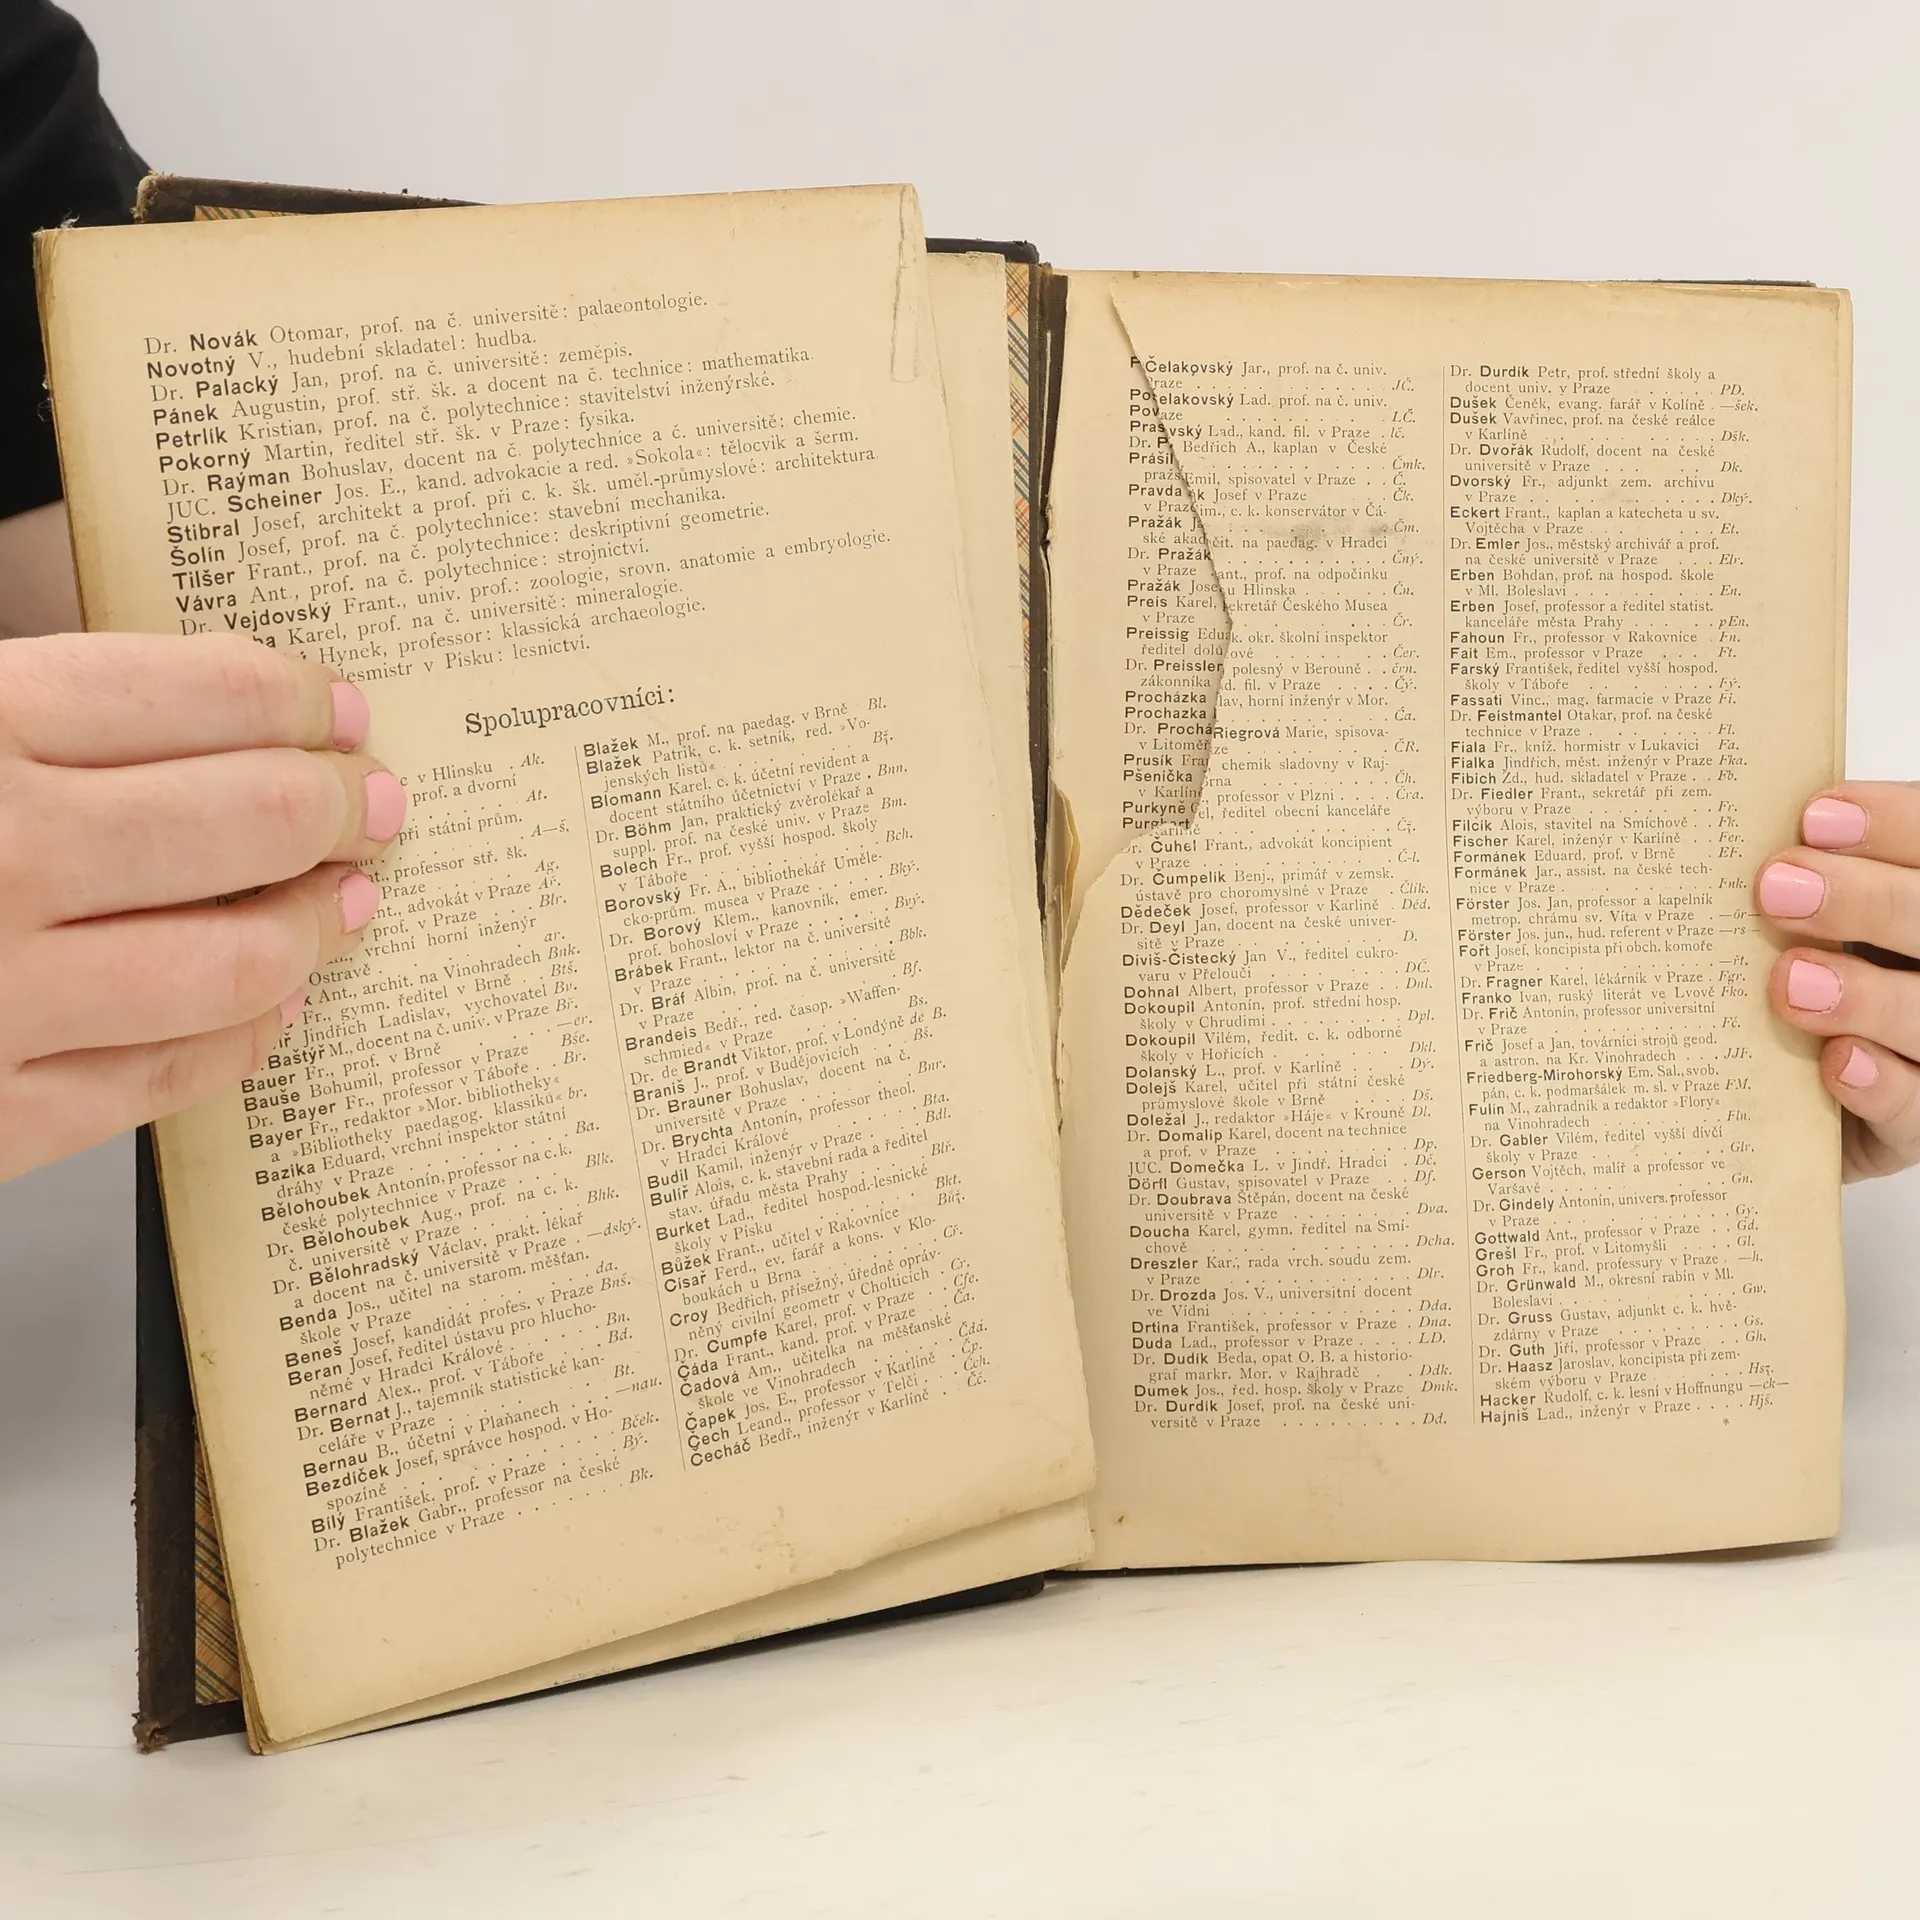 Dr. Novák Otomar, prof. na č. universitě: palaeontologie.
Novotný V., hudební skladatel: hudba.
Dr. Palacký Jan, prof. na č. universitě: zeměpis.
Pánek Augustin, prof. stř. šk. a docent na č. technice: mathematika.
Petrlík Kristian, prof. na č. polytechnice: stavitelství inženýrské.
Pokorný Martin, ředitel stř. šk. v Praze: fysika.
Dr. Raýman Bohuslav, docent na č. polytechnice a č. universitě: chemie.
JUC. Scheiner Jos. E., kand. advokacie a red. »Sokola«: tělocvik a šerm.
Stibral Josef, architekt a prof. při c. k. šk. uměl.-průmyslové: architektura.
Šolín Josef, prof. na č. polytechnice: stavební mechanika.
Tilšer Frant., prof. na č. polytechnice: deskriptivní geometrie.
Vávra Ant., prof. na č. polytechnice: strojnictví.
Dr. Vejdovský Frant., univ. prof.: zoologie, srovn. anatomie a embryologie.
ba Karel, prof. na č. universitě: mineralogie.
Hynek, professor: klassická archaeologie.
lesmistr v Písku: lesnictví.
Spolupracovníci:
c v Hlinsku . Ak.
prof. a dvorní
. . . . . At.
při státní prům.
. . . . . A—š.
nt., professor stř. šk.
Praze . . . . . Ag.
nt., advokát v Praze Ař.
prof. v Praze . . . Blr.
vrchní horní inženýr
Ostravě . . . . . ar.
k Ant., archit. na Vinohradech Bnk.
Fr., gymn. ředitel v Brně . Btš.
íř Jindřich Ladislav, vychovatel Bv.
Baštýř M., docent na č. univ. v Praze Bř.
Bauer Fr., prof. v Brně . . . —er.
Bauše Bohumil, professor v Praze Bše.
Dr. Bayer Fr., professor v Táboře . . Br.
Bayer Fr., redaktor »Mor. bibliotheky«
a »Bibliotheky paedagog. klassiků« br.
Bazika Eduard, vrchní inspektor státní
dráhy v Praze . . . . . . Ba.
Bělohoubek Antonín, professor na c. k.
české polytechnice v Praze . . . Blk.
Dr. Bělohoubek Aug., prof. na c. k.
č. universitě v Praze . . . . . Bhk.
Dr. Bělohradský Václav, prakt. lékař
a docent na č. universitě v Praze . —dský.
Benda Jos., učitel na starom. měšťan.
škole v Praze . . . . . . . da.
Beneš Josef, kandidát profes. v Praze Bnš.
Beran Josef, ředitel ústavu pro hlucho-
němé v Hradci Králové . . . . . Bn.
Bernard Alex., prof. v Táboře . . . Bd.
Dr. Bernat J., tajemník statistické kan-
celáře v Praze . . . . . . . Bt.
Bernau B., účetní v Plaňanech . . —nau.
Bezdíček Josef, správce hospod. v Ho-
spozíně . . . . . . . . Bček.
Bílý František, prof. v Praze . . . Bý.
Dr. Blažek Gabr., professor na české
polytechnice v Praze . . . . . . Bk.
Blažek M., prof. na paedag. v Brně Bl.
Blažek Patrik, c. k. setník, red. »Vo-
jenských listů« . . . . . . . Bž.
Blomann Karel, c. k. účetní revident a
docent státního účetnictví v Praze . Bnn.
Dr. Böhm Jan, praktický zvěrolékař a
suppl. prof. na české univ. v Praze Bm.
Bolech Fr., prof. vyšší hospod. školy
v Táboře . . . . . . . . Bch.
Borovský Fr. A., bibliothekář Uměle-
cko-prům. musea v Praze . . . . Bký.
Dr. Borový Klem., kanovník, emer.
prof. bohosloví v Praze . . . . Bvý.
Brábek Frant., lektor na č. universitě
v Praze . . . . . . . . Bbk.
Dr. Bráf Albin, prof. na č. universitě
v Praze . . . . . . . . . Bf.
Brandeis Bedř., red. časop. »Waffen-
schmied« v Praze . . . . . . Bs.
Dr. de Brandt Viktor, prof. v Londýně de B.
Braniš J., prof. v Budějovicích . . . Bš.
Dr. Brauner Bohuslav, docent na č.
universitě v Praze . . . . . . Bnr.
Dr. Brychta Antonín, professor theol.
v Hradci Králové . . . . . . Bta.
Budil Kamil, inženýr v Praze . . . Bdl.
Bulíř Alois, c. k. stavební rada a ředitel
stav. úřadu města Prahy . . . . Blř.
Burket Lad., ředitel hospod.-lesnické
školy v Písku . . . . . . . Bkt.
Bůžek Frant., učitel v Rakovníce . . Bůž.
Císař Ferd., ev. farář a kons. v Klo-
boukách u Brna . . . . . . . Cř.
Croy Bedřich, přísežný, úředně opráv-
něný civilní geometr v Cholticích . Cr.
Dr. Cumpfe Karel, prof. v Praze . . Cfe.
Čáda Frant., kand. prof. v Praze . . Ča.
Čadová Am., učitelka na měšťanské
škole ve Vinohradech . . . . . Čdá.
Čapek Jos. E., professor v Karlíně . Čp.
Čech Leand., professor v Telči . . . Čch.
Čecháč Bedř., inženýr v Karlíně . . Čč.
Čelakovský Jar., prof. na č. univ.
Praze . . . . . . . . JČ.
elakovský Lad. prof. na č. univ.
aze . . . . . . . . LČ.
vský Lad., kand. fil. v Praze . lč.
Bedřich A., kaplan v České
. . . . . . . . Čmk.
Emil, spisovatel v Praze . . Č.
k Josef v Praze . . . . . Čk.
im., c. k. konservátor v Čá-
. . . . . . . . Čm.
čit. na paedag. v Hradci
. . . . . . . . Čný.
ant., prof. na odpočinku
u Hlinska . . . . . . Čn.
ekretář Českého Musea
. . . . . . . . Čr.
k. okr. školní inspektor
ové . . . . . . . Čer.
polesný v Berouně . . črn.
d. fil. v Praze . . . . Čý.
lav, horní inženýr v Mor.
. . . . . . . . Ča.
Riegrová Marie, spisova-
ze . . . . . . . ČR.
chemik sladovny v Raj-
rna . . . . . . . Čh.
, professor v Plzni . . . . Čra.
el, ředitel obecní kanceláře
Karlíně . . . . . . . Čž.
Dr. Čuhel Frant., advokát koncipient
v Praze . . . . . . . . Č-l.
Dr. Čumpelík Benj., primář v zemsk.
ústavě pro choromyslné v Praze . Člík.
Dědeček Josef, professor v Karlíně . Děd.
Dr. Deyl Jan, docent na české univer-
sitě v Praze . . . . . . . D.
Diviš-Čistecký Jan V., ředitel cukro-
varu v Přelouči . . . . . . DČ.
Dohnal Albert, professor v Praze . . Dnl.
Dokoupil Antonín, prof. střední hosp.
školy v Chrudimi . . . . . . Dpl.
Dokoupil Vilém, ředit. c. k. odborné
školy v Hořicích . . . . . . Dkl.
Dolanský L., prof. v Karlíně . . . Dý.
Dolejš Karel, učitel při státní české
průmyslové škole v Brně . . . . Dš.
Doležal J., redaktor »Háje« v Krouně Dl.
Dr. Domalíp Karel, docent na technice
a prof. v Praze . . . . . . . Dp.
JUC. Domečka L. v Jindř. Hradci . Dč.
Dörfl Gustav, spisovatel v Praze . . Df.
Dr. Doubrava Štěpán, docent na české
universitě v Praze . . . . . . Dva.
Doucha Karel, gymn. ředitel na Smí-
chově . . . . . . . . . Dcha.
Dreszler Kar., rada vrch. soudu zem.
v Praze . . . . . . . . Dlr.
Dr. Drozda Jos. V., universitní docent
ve Vídni . . . . . . . . Dda.
Drtina František, professor v Praze . Dna.
Duda Lad., professor v Praze . . . LD.
Dr. Dudík Beda, opat O. B. a historio-
graf markr. Mor. v Rajhradě . . . Ddk.
Dumek Jos., řed. hosp. školy v Praze Dmk.
Dr. Durdík Josef, prof. na české uni-
versitě v Praze . . . . . . . Dd.
Pov
Dr. P
Prášil
praž
Pravda
v Praz
Pražák J
ské akad
Dr. Pražák
v Praze
Pražák Jose
Preis Karel,
v Praze
Preissig Edu
ředitel dolů
Dr. Preissler
zákonníka
Procházka
Prochazka
Dr. Prochá
v Litoměř
Prusík Fra
Pšenička
v Karlín
Purkyně
Purghart
Dr. Durdík Petr, prof. střední školy a
docent univ. v Praze . . . . . PD.
Dušek Čeněk, evang. farář v Kolíně . —šek.
Dušek Vavřinec, prof. na české reálce
v Karlíně . . . . . . . . Dšk.
Dr. Dvořák Rudolf, docent na české
universitě v Praze . . . . . . Dk.
Dvorský Fr., adjunkt zem. archivu
v Praze . . . . . . . . Dký.
Eckert Frant., kaplan a katecheta u sv.
Vojtěcha v Praze . . . . . . Et.
Dr. Emler Jos., městský archivář a prof.
na české universitě v Praze . . . Elr.
Erben Bohdan, prof. na hospod. škole
v Ml. Boleslavi . . . . . . . En.
Erben Josef, professor a ředitel statist.
kanceláře města Prahy . . . . pEn.
Fahoun Fr., professor v Rakovníce . Fn.
Fait Em., professor v Praze . . . Ft.
Farský František, ředitel vyšší hospod.
školy v Táboře . . . . . . . Fý.
Fassati Vinc., mag. farmacie v Praze Fi.
Dr. Feistmantel Otakar, prof. na české
technice v Praze . . . . . . . Fl.
Fiala Fr., kníž. hormistr v Lukavici Fa.
Fialka Jindřich, měst. inženýr v Praze Fka.
Fibich Zd., hud. skladatel v Praze . . Fb.
Dr. Fiedler Frant., sekretář při zem.
výboru v Praze . . . . . . . Fr.
Filcík Alois, stavitel na Smíchově . . Fk.
Fischer Karel, inženýr v Karlíně . . Fer.
Formánek Eduard, prof. v Brně . . EF.
Formánek Jar., assist. na české tech-
nice v Praze . . . . . . . Fnk.
Förster Jos. Jan, professor a kapelník
metrop. chrámu sv. Víta v Praze . —ör—
Förster Jos. jun., hud. referent v Praze —rs—
Fořt Josef, koncipista při obch. komoře
v Praze . . . . . . . . —řt.
Dr. Fragner Karel, lékárník v Praze . Fgr.
Franko Ivan, ruský literát ve Lvově Fko.
Dr. Frič Antonín, professor universitní
v Praze . . . . . . . . Fč.
Frič Josef a Jan, továrníci strojů geod.
a astron. na Kr. Vinohradech . . . JJF.
Friedberg-Mirohorský Em. Sal., svob.
pán, c. k. podmaršálek m. sl. v Praze FM.
Fulín M., zahradník a redaktor »Flory«
na Vinohradech . . . . . . . Fln.
Dr. Gabler Vilém, ředitel vyšší dívčí
školy v Praze . . . . . . . Glr.
Gerson Vojtěch, malíř a professor ve
Varšavě . . . . . . . . . Gn.
Dr. Gindely Antonín, univers. professor
v Praze . . . . . . . . . Gy.
Gottwald Ant., professor v Praze . . Gd.
Grešl Fr., prof. v Litomyšli . . . . Gl.
Groh Fr., kand. professury v Praze . —h.
Dr. Grünwald M., okresní rabín v Ml.
Boleslavi . . . . . . . . Gw.
Dr. Gruss Gustav, adjunkt c. k. hvě-
zdárny v Praze . . . . . . . Gs.
Dr. Guth Jiří, professor v Praze . . Gh.
Dr. Haasz Jaroslav, koncipista při zem-
ském výboru v Praze . . . . . Hsz.
Hacker Rudolf, c. k. lesní v Hoffnungu —ck—
Hajniš Lad., inženýr v Praze . . . . Hjš.
*